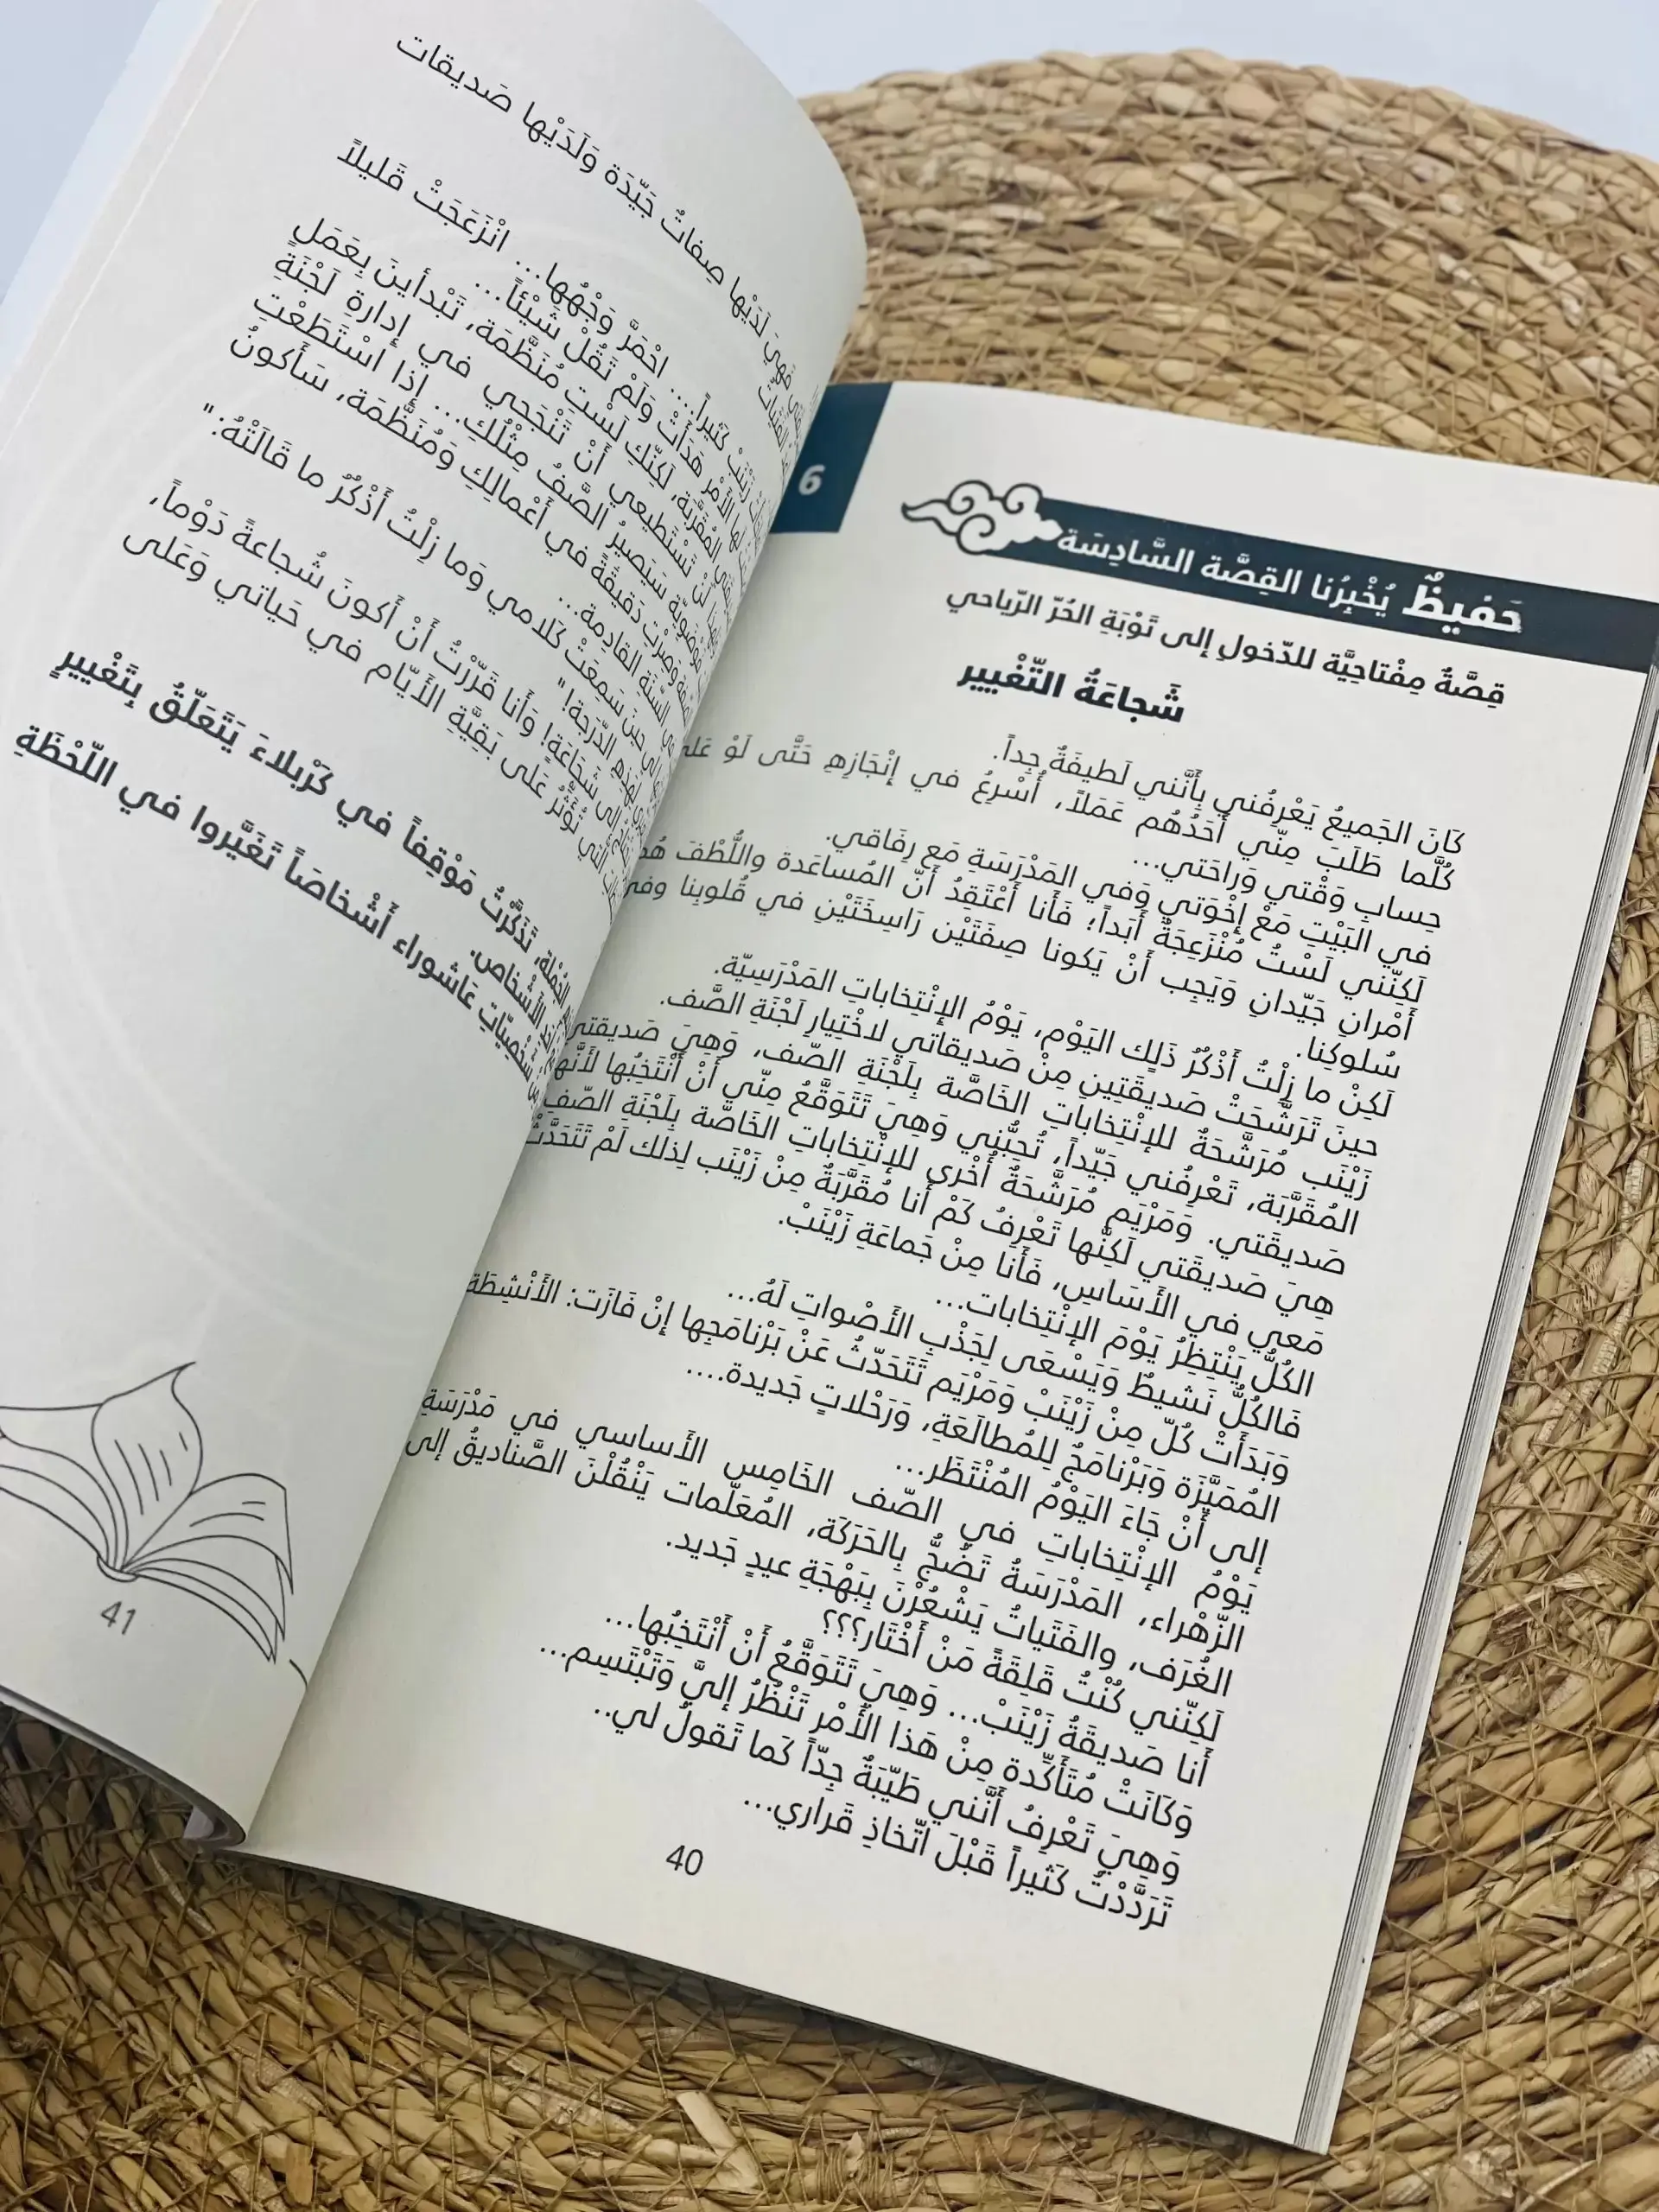 6
حَفيظٌ يُخْبِرُنا القِصَّة السَّادِسَة
قِصَّةٌ مِفْتاحِيَّة للدّخولِ إلى تَوْبَةِ الحُرّ الرّياحي
شَجاعَةُ التّغْيير
كَانَ الجَميعُ يَعْرِفُني بِأَنَّني لَطيفَةٌ جِداً.
كُلَّما طَلَبَ مِنّي أَحَدُهُم عَمَلاً، أُسْرِعُ في إنْجَازِهِ حَتَّى لَوْ
حِسابِ وَقْتي وَراحَتي...
في البَيْتِ مَعْ إخْوَتي وَفي المَدْرَسَةِ مَع رِفَاقي.
لَكِنّني لَسْتُ مُنْزَعِجَةً أَبَداً؛ فَأَنا أَعْتَقِدُ أَنّ المُساعَدة واللُّطْفَ
أَمْرانِ جَيّدانِ وَيَجِب أَنْ يَكونا صِفَتَيْن رَاسِخَتَيْنِ في قُلوبِنا وفي
سُلوكِنا.
لَكِنْ ما زِلْتُ أَذْكُرُ ذَلِك اليَوْم، يَوْمُ الإنْتِخاباتِ المَدْرَسِيّة.
حينَ تَرَشَّحَتْ صَديقَتِين مِنْ صَديقاتي لاخْتِيارِ لَجْنَةِ الصَّف.
زَيْنَب مُرَشَّحَةٌ للإنْتِخاباتِ الخَاصَّة بِلَجْنَةِ الصّف، وَهِيَ صَديقتي
المُقَرَّبَة، تَعْرِفُني جَيّداً، تُحِبُّني وَهِيَ تَتَوَقَّعُ مِنّي أَنْ أَنْتَخِبُها لأَنَّها
صَديقَتي. وَمَرْيَم مُرَشَّحَةٌ أُخْرى للإنْتِخاباتِ الخَاصّة بِلَجْنَةِ الصّفِ
هِيَ صَديقَتي لَكِنَّها تَعْرِفُ كَمْ أَنا مُقَرَّبَةٌ مِنْ زَيْنَب لِذلك لَمْ تَتَحَدَّثْ
مَعي في الأَسَاسِ، فَأَنا مِنْ جَماعَةِ زَيْنَبْ.
الكُلُّ يَنْتِظِرُ يَوْمَ الإنْتِخابات...
فَالكُلُّ نَشيطٌ وَيَسْعَى لِجَذْبِ الأَصْواتِ لَهُ...
وَبَدَأَتْ كُلّ مِنْ زَيْنَبْ وَمَرْيَم تَتَحَدّثُ عَنْ بَرْنامَجِها إنْ فَازَت: الأَنْشِطَة
المُمَيَّزَة وَبَرْنامَجٌ لِلمُطالَعَةِ، وَرَحْلاتٍ جَديدة....
إلى أَنْ جَاءَ اليَوْمُ المُنْتَظَر...
يَوْمُ الإنْتِخاباتِ في الصّف الخَامِس الأَساسي في مَدْرَسَةِ
الزّهْراء، المَدْرَسَةُ تَضُجُّ بِالحَرَكَة، المُعَلّمات يَنْقُلْنَ الصَّناديقُ إلى
الغُرَف، والفَتَياتُ يَشْعُرْنَ بِبَهْجَةِ عيدٍ جَديد.
لَكِنّني كُنْتُ قَلِقَةً مَنْ أَخْتَار؟؟؟
أَنا صَديقَةُ زَيْنَبْ... وَهِيَ تَتَوَقَّعُ أَنْ أَنْتَخِبُها...
وَكَانَتْ مُتَأَكِّدة مِنْ هَذا الأَمْر تَنْظُرُ إليَّ وَتَبْتَسِم...
وَهِيَ تَعْرِفُ أَنَّني طَيّبَةٌ جِدّاً كَما تَقولُ لي..
تَرَدَّدْتُ كَثيراً قَبْلَ اتّخاذِ قَراري...
40
فَهِيَ لَدَيْها صِفاتٌ جَيّدَة وَلَدَيْها صَديقات
زَيْنَبْ كَثيراً.... احْمَرَّ وَجْهُها... انْزَعَجَتْ قَليلاً
الأَمْر هَدَأَتْ وَلَمْ تَقُلْ شَيْئاً...
المُقَرَّبَة، لَكِنّكِ لَسْتِ مُنَظَّمَة، تَبْدأينَ بِعَمَلٍ
لَنْ تَسْتَطيعي أَنْ تَنْجَحِي في إدارةِ لَجْنَةٍ
سَيَصيرُ الصَّفُ مِثْلُكِ... إذا اسْتَطَعْتِ
دَقيقَةً في أَعْمالِكِ وَمُنَظَّمَة، سَأَكونُ
السَّنَةِ القادِمة...
حينَ سَمِعَتْ كَلامي وَما زِلْتُ أَذْكُرُ ما قَالَتْهُ:"
لِهَذِهِ الدّرَجة!"
إلى شَجَاعَة! وَأَنا قَرّرْتُ أَنْ أَكونَ شُجاعةً دَوْماً،
التي تُؤَثّرُ عَلى بَقِيَّةِ الأَيّام في حَياتي وَعَلى
تَذَكَّرْتُ مَوْقِفاً في كَرْبلاءَ يَتَعَلّقُ بِتَغْييرٍ
الأَشْخاص.
شَخْصِيّاتِ عَاشوراء أَشْخاصَاً تَغَيَّروا في اللّحْظَةِ
41